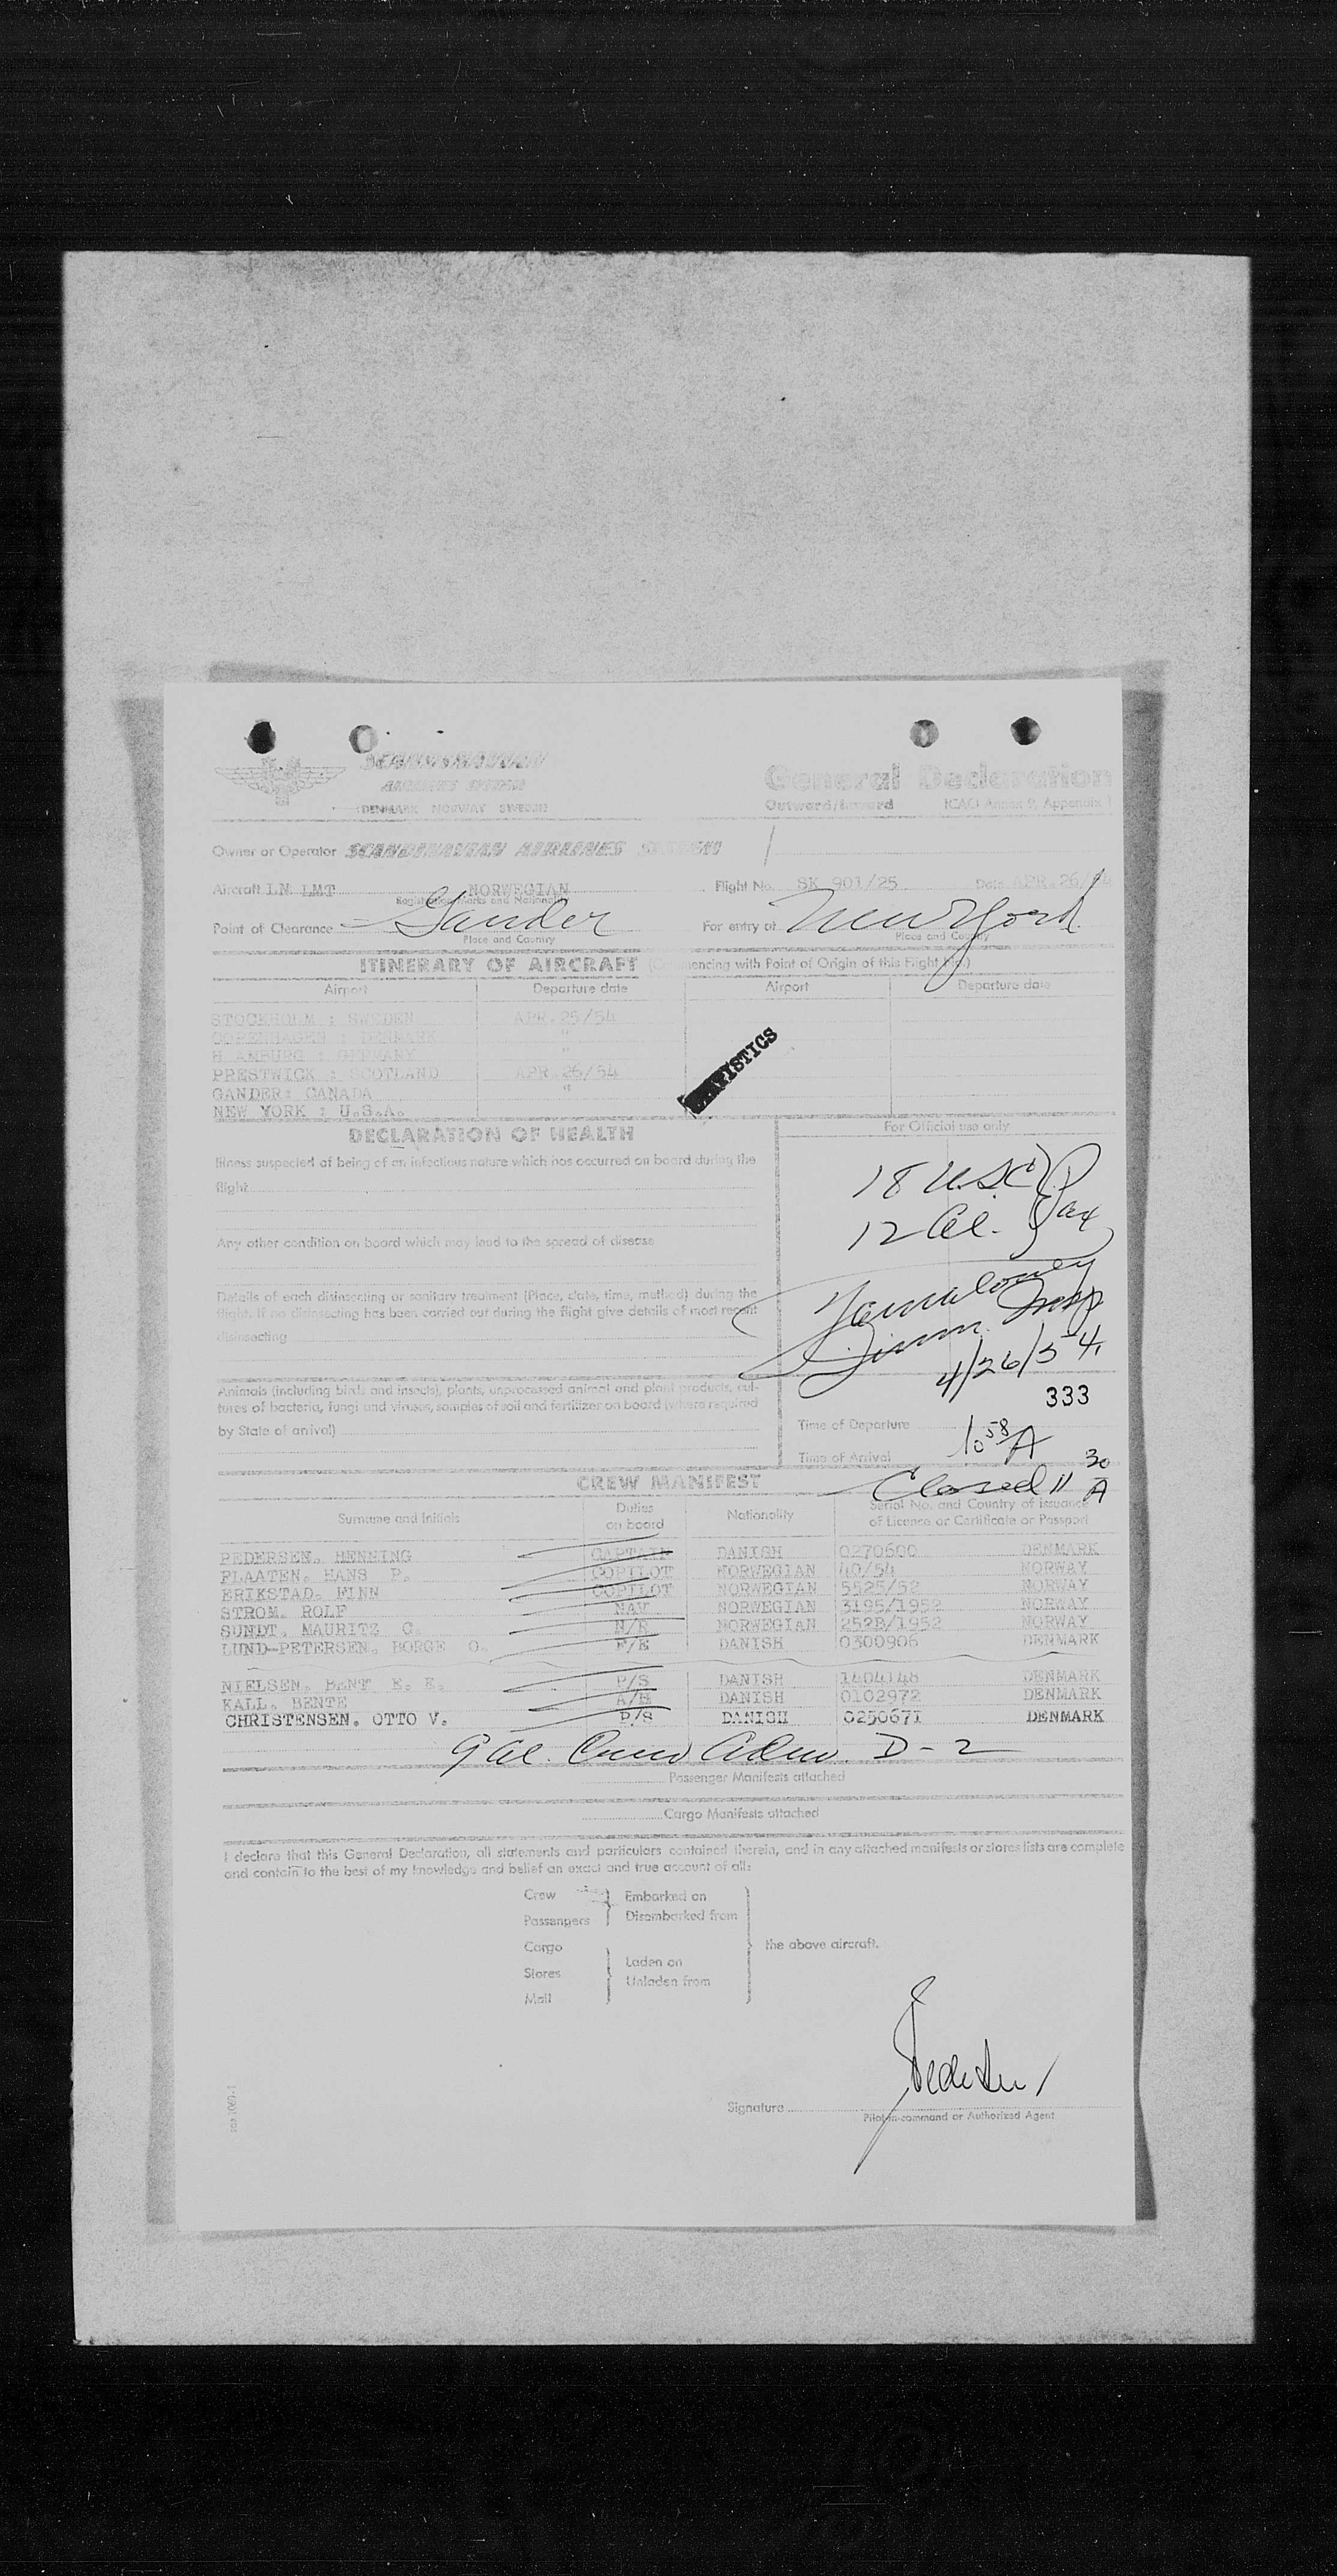 SCANDINAVIAN
AIRLINES SYSTEM
DENMARK NORWAY SWEDEN
General Declaration
Outward/Inward (ICAO Annex 9, Appendix 1
Owner or Operator SCANDINAVIAN AIRLINES SYSTEM
Aircraft LN LMT NORWEGIAN Flight No. SK 901/25 Date APR.26/54
Registration Marks and Nationality
Point of Clearance Gander For entry at New York
Place and Country Place and Country
ITINERARY OF AIRCRAFT (Commencing with Point of Origin of this Flight No.)
Airport Departure date Airport Departure date
STOCKHOLM : SWEDEN APR.25/54
COPENHAGEN : DENMARK "
H AMBURG : GERMANY "
PRESTWICK : SCOTLAND APR.26/54
GANDER: CANADA "
NEW YORK : U.S.A.
DECLARATION OF HEALTH
For Official use only
Illness suspected of being of an infectious nature which has occurred on board during the
flight
18 USC
12 Al. Pax
Any other condition on board which may lead to the spread of disease
Details of each disinsecting or sanitary treatment (Place, date, time, method) during the
flight. If no disinsecting has been carried out during the flight give details of most recent
disinsecting
Immn. Insp
4/26/54
Animals (including birds and insects), plants, unprocessed animal and plant products, cul-
tures of bacteria, fungi and viruses, samples of soil and fertilizer on board (where required
by State of arrival)
333
Time of Departure
Time of Arrival 10 58 A
Closed 11 30 A
CREW MANIFEST
Surname and Initials Duties on board Nationality Serial No. and Country of issuance of Licence or Certificate or Passport
PEDERSEN. HENNING CAPTAIN DANISH 0270600 DENMARK
PLAATEN. HANS P. COPILOT NORWEGIAN 40/54 NORWAY
ERIKSTAD. FINN COPILOT NORWEGIAN 5525/52 NORWAY
STROM. ROLF NAV NORWEGIAN 3195/1952 NORWAY
SUNDT. MAURITZ C. NORWEGIAN NORWAY
LUND-PETERSEN. BORGE O. F/E DANISH 0300906 DENMARK
NIELSEN. BENT E. E. P/S DANISH 1404148 DENMARK
KALL. BENTE A/H DANISH 0102972 DENMARK
CHRISTENSEN. OTTO V. P/S DANISH 0250671 DENMARK
9 Al. Crew Adm. D-2
Passenger Manifests attached
Cargo Manifests attached
I declare that this General Declaration, all statements and particulars contained therein, and in any attached manifests or stores lists are complete
and contain to the best of my knowledge and belief an exact and true account of all:
Crew Embarked on
Passengers Disembarked from
Cargo the above aircraft.
Stores Laden on
Mail Unladen from
Pedersen
Signature
Pilot-in-command or Authorized Agent
sas 1060-1